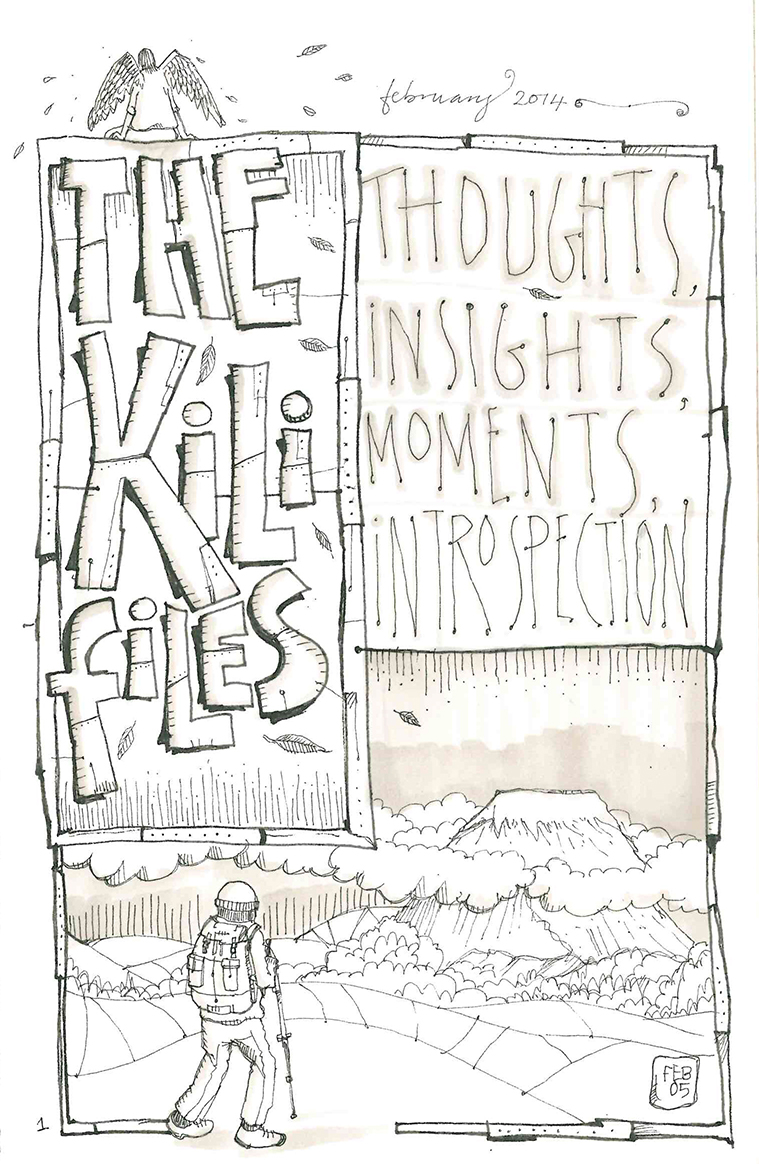 february 2014
THE
KiLi
fiLES
THOUGHTS,
iNSIGHTS,
MOMENTS,
iNTROSPECTiON
FEB
05
1